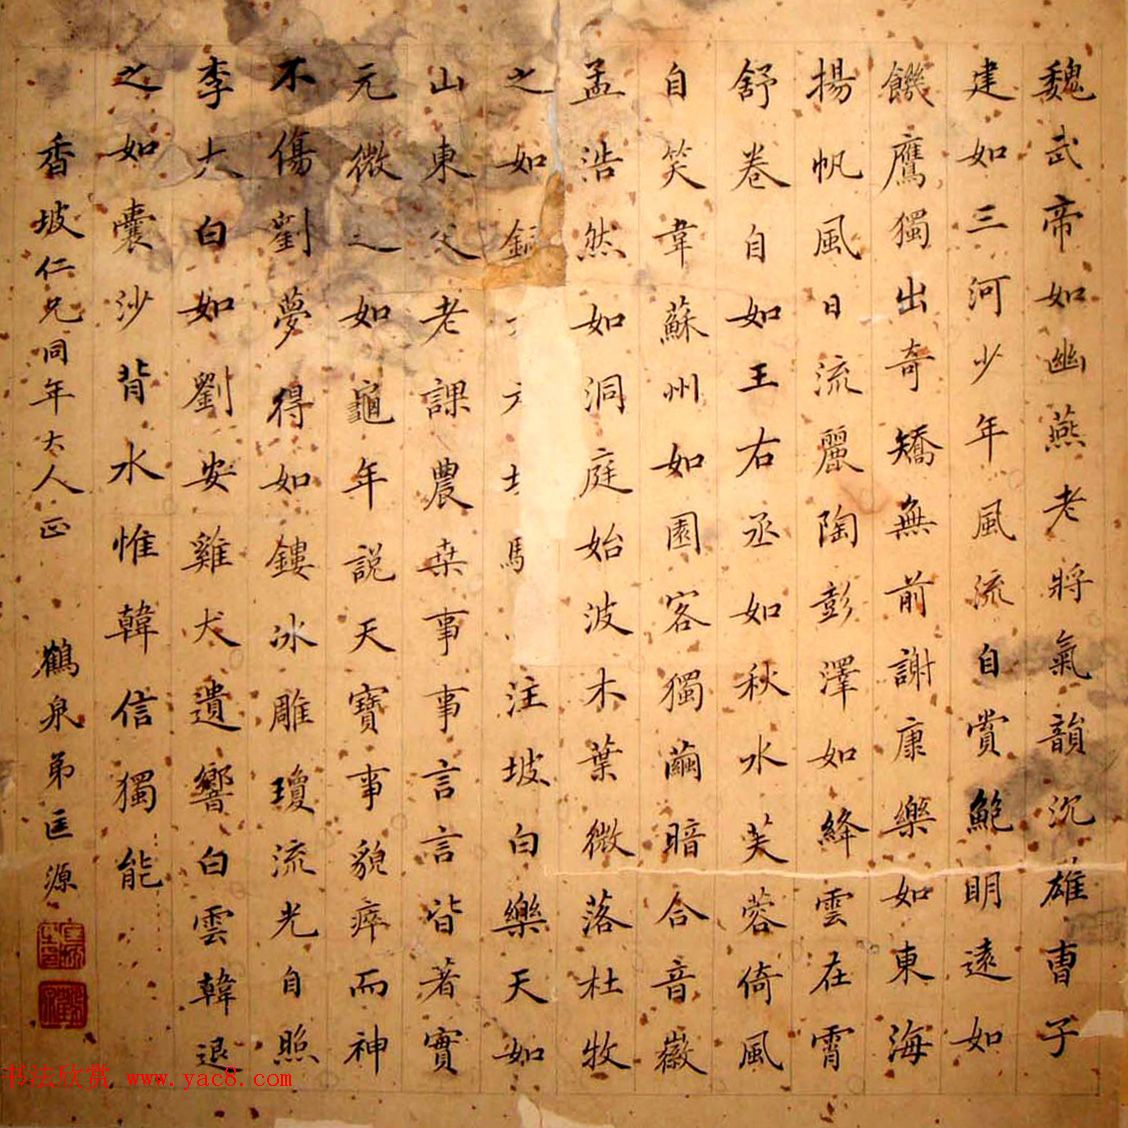 魏武帝如幽燕老將氣韻沉雄曹子
建如三河少年風流自賞鮑明遠如
饑鷹獨出奇矯無前謝康樂如東海
揚帆風日流麗陶彭澤如絳雲在霄
舒卷自如王右丞如秋水芙蓉倚風
自笑韋蘇州如園客獨繭暗合音徽
孟浩然如洞庭始波木葉微落杜牧
之如注坡白樂天如
山東父老課農桑事事言言皆著實
元微之如龜年說天寶事貌瘁而神
不傷劉夢得如鏤冰雕瓊流光自照
李大白如劉安雞犬遺響白雲韓退
之如囊沙背水惟韓信獨能
香坡仁兄同年大人正 鶴泉弟匡源
书法欣赏 www.yac8.com